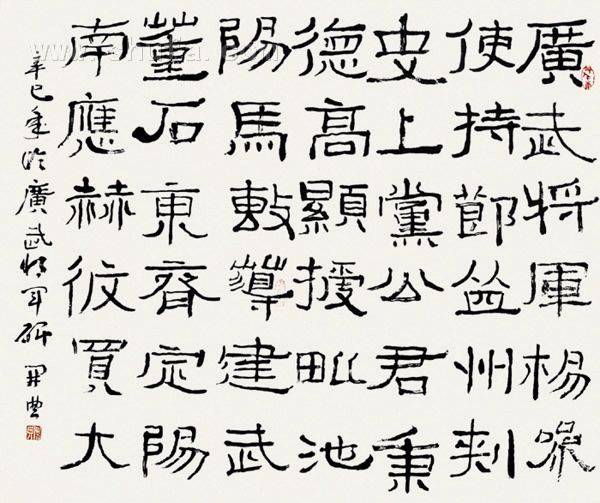 廣武將軍楊
使持節益州刺
史上黨公君秉
德高顯授毗池
陽馬敷導建武
董石東齊定陽
南應赫彼買大
辛巳年臨廣武將軍碑